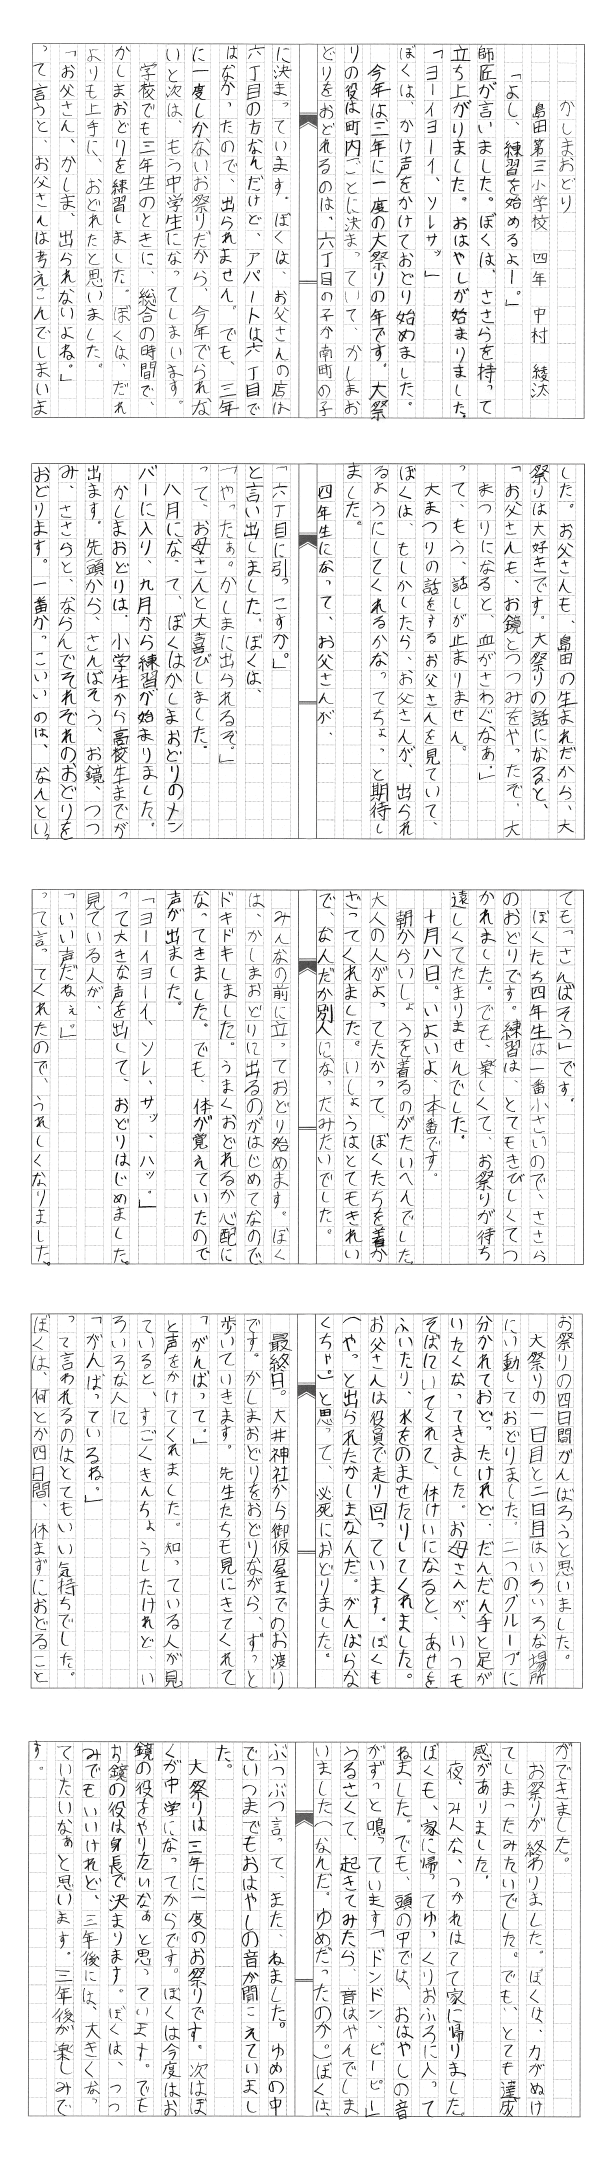 かしまおどり
島田第三小学校　四年　中村　綾汰
「よし、練習を始めるよー。」
師匠が言いました。ぼくは、ささらを持って
立ち上がりました。おはやしが始まりました。
「ヨーイヨーイ、ソレサッ」
ぼくは、かけ声をかけておどり始めました。
今年は三年に一度の大祭りの年です。大祭
りの役は町内ごとに決まっていて、かしまお
どりをおどれるのは、六丁目の子か南町の子
に決まっています。ぼくは、お父さんの店は
六丁目の方なんだけど、アパートは六丁目で
はなかったので、出られません。でも、三年
に一度しかないお祭りだから、今年でられな
いと次は、もう中学生になってしまいます。
学校でも三年生のときに、総合の時間で、
かしまおどりを練習しました。ぼくは、だれ
よりも上手に、おどれたと思いました。
「お父さん、かしま、出られないよね。」
って言うと、お父さんは考えこんでしまいま
した。お父さんも、島田の生まれだから、大
祭りは大好きです。大祭りの話になると、
「お父さんも、お鏡とつつみをやったぞ、大
まつりになると、血がさわぐなあ。」
って、もう、話しが止まりません。
大まつりの話をするお父さんを見ていて、
ぼくは、もしかしたら、お父さんが、出られ
るようにしてくれるかなってちょっと期待し
ました。
四年生になって、お父さんが、
「六丁目に引っこすか。」
と言い出しました。ぼくは、
「やったぁ。かしまに出られるぞ。」
って、お母さんと大喜びしました。
八月になって、ぼくはかしまおどりのメン
バーに入り、九月から練習が始まりました。
かしまおどりは、小学生から高校生までが
出ます。先頭から、さんばそう、お鏡、つつ
み、ささらと、ならんでそれぞれのおどりを
おどります。一番かっこいいのは、なんといっ
ても「さんばそう」です。
ぼくたち四年生は一番小さいので、ささら
のおどりです。練習は、とてもきびしくてつ
かれました。でも、楽しくて、お祭りが待ち
遠しくてたまりませんでした。
十月八日。いよいよ、本番です。
朝からいしょうを着るのがたいへんでした。
大人の人がよってたかって、ぼくたちを着か
ざってくれました。いしょうはとてもきれい
で、なんだか別人になったみたいでした。
みんなの前に立っておどり始めます。ぼく
は、かしまおどりに出るのがはじめてなので
ドキドキしました。うまくおどれるか心配に
なってきました。でも、体が覚えていたので
声が出ました。
「ヨーイヨーイ、ソレ、サッ、ハッ。」
って大きな声を出して、おどりはじめました。
見ている人が、
「いい声だねぇ。」
って言ってくれたので、うれしくなりました。
お祭りの四日間がんばろうと思いました。
大祭りの一日目と二日目はいろいろな場所
にい動しておどりました。二つのグループに
分かれておどったけれど、だんだん手と足が
いたくなってきました。お母さんが、いつも
そばにいてくれて、休けいになると、あせを
ふいたり、水をのませたりしてくれました。
お父さんは役員で走り回っています。ぼくも
（やっと出られたかしまなんだ。がんばらな
くちゃ）と思って、必死におどりました。
最終日。大井神社から御仮屋までのお渡り
です。かしまおどりをおどりながら、ずっと
歩いていきます。先生たちも見にきてくれて
「がんばって。」
と声をかけてくれました。知っている人が見
ていると、すごくきんちょうしたけれど、い
ろいろな人に
「がんばっているね。」
って言われるのはとてもいい気持ちでした。
ぼくは、何とか四日間、休まずにおどること
ができました。
お祭りが終わりました。ぼくは、力がぬけ
てしまったみたいでした。でも、とても達成
感がありました。
夜、みんな、つかれはてて家に帰りました。
ぼくも、家に帰ってゆっくりおふろに入って
ねました。でも、頭の中では、おはやしの音
がずっと鳴っています「ドンドン、ピーピー」
うるさくて、起きてみたら、音はやんでしま
いました（なんだ。ゆめだったのか。）ぼくは、
ぶつぶつ言って、また、ねました。ゆめの中
でいつまでもおはやしの音が聞こえていまし
た。
大祭りは三年に一度のお祭りです。次はぼ
くが中学になってからです。ぼくは今度はお
鏡の役をやりたいなぁと思っています。でも
お鏡の役は身長で決まります。ぼくは、つつ
みでもいいけれど、三年後には、大きくなっ
ていたいなぁと思います。三年後が楽しみで
す。